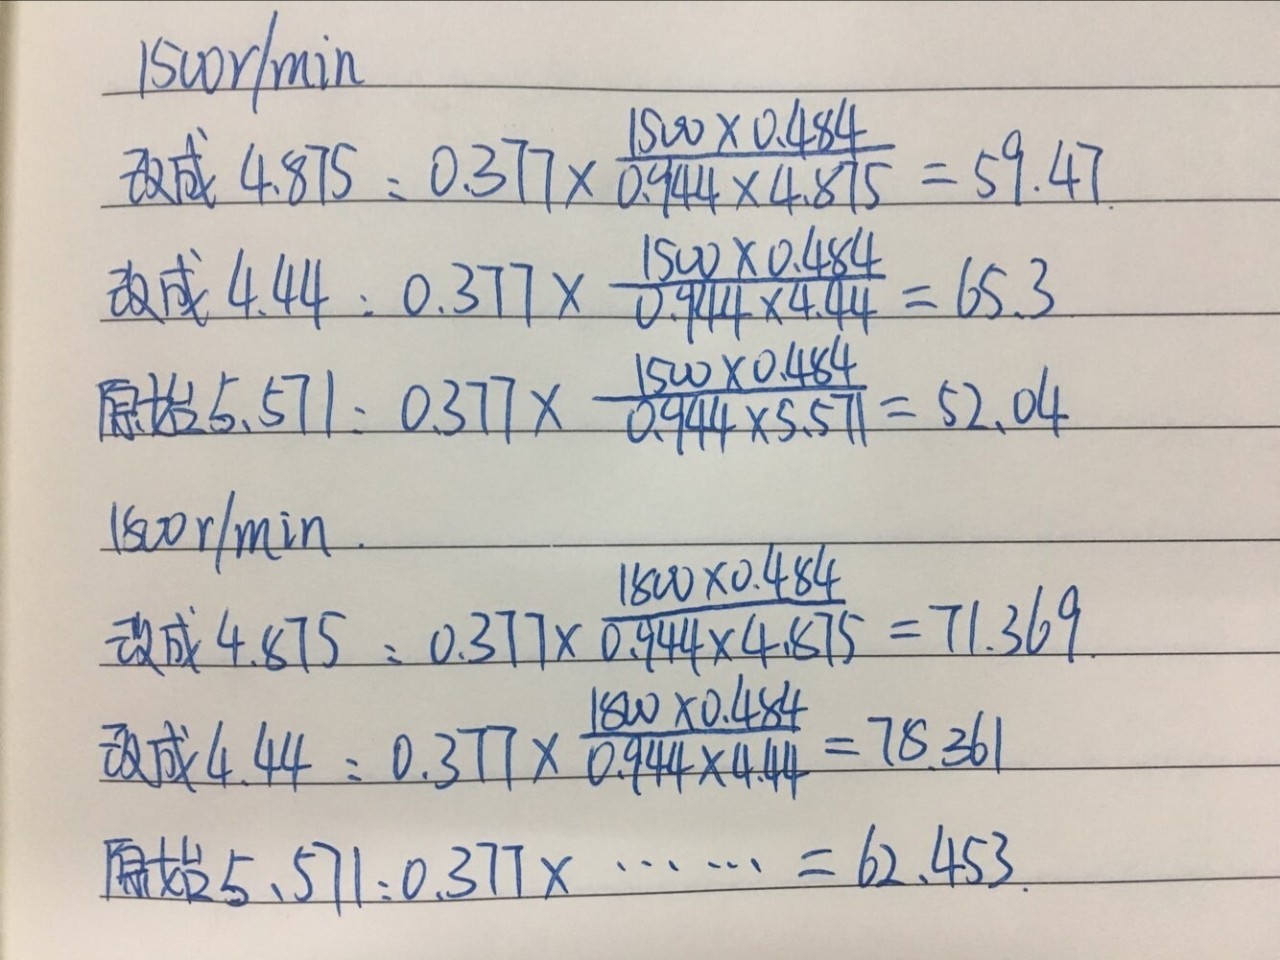 1500r/min
改成 4.875 : 0.377 × 1500 × 0.484 / 0.944 × 4.875 = 59.47
改成 4.44 : 0.377 × 1500 × 0.484 / 0.944 × 4.44 = 65.3
原始 5.571 : 0.377 × 1500 × 0.484 / 0.944 × 5.571 = 52.04
1800r/min.
改成 4.875 : 0.377 × 1800 × 0.484 / 0.944 × 4.875 = 71.369
改成 4.44 : 0.377 × 1800 × 0.484 / 0.944 × 4.44 = 78.361
原始 5.571 : 0.377 × …… = 62.453